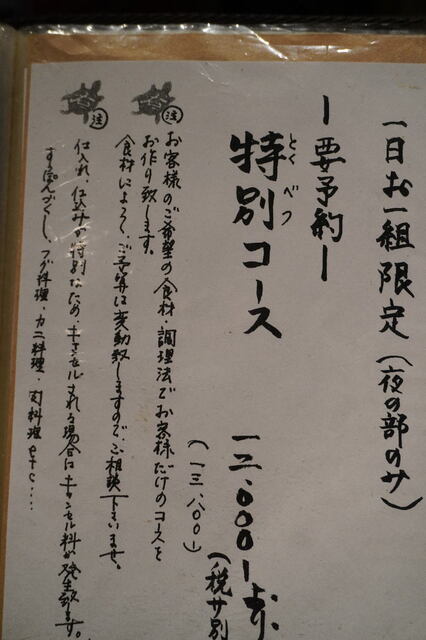 一日お一組限定（夜の部のサ）
ー要予約ー
とくべつ
特別コース
一二、〇〇〇ーより
（税サ別
（一三、八〇〇ー）
注
お客様のご希望の食材・調理法でお客様だけのコースを
お作り致します。
食材によって、ご予算は変動致しますので、ご相談下さいませ。
注
仕入れ、仕込みが特別なため、キャンセルされる場合はキャンセル料が発生致します。
すっぽんづくし、フグ料理・カニ料理・肉料理etc・・・